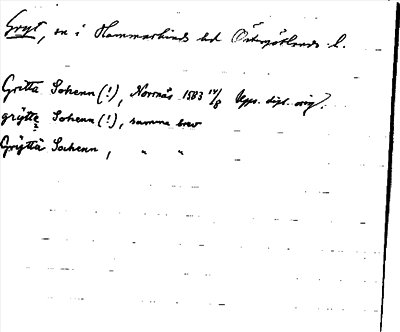 Gryt, sn i Hammarkinds hd Östergötlands l.
Gritta Sohenn (!), Norrnäs 1583 14/8 Upps. dipl. orig.
grÿtte Sohenn (!), samma brev
Grÿtta Sochenn, " "